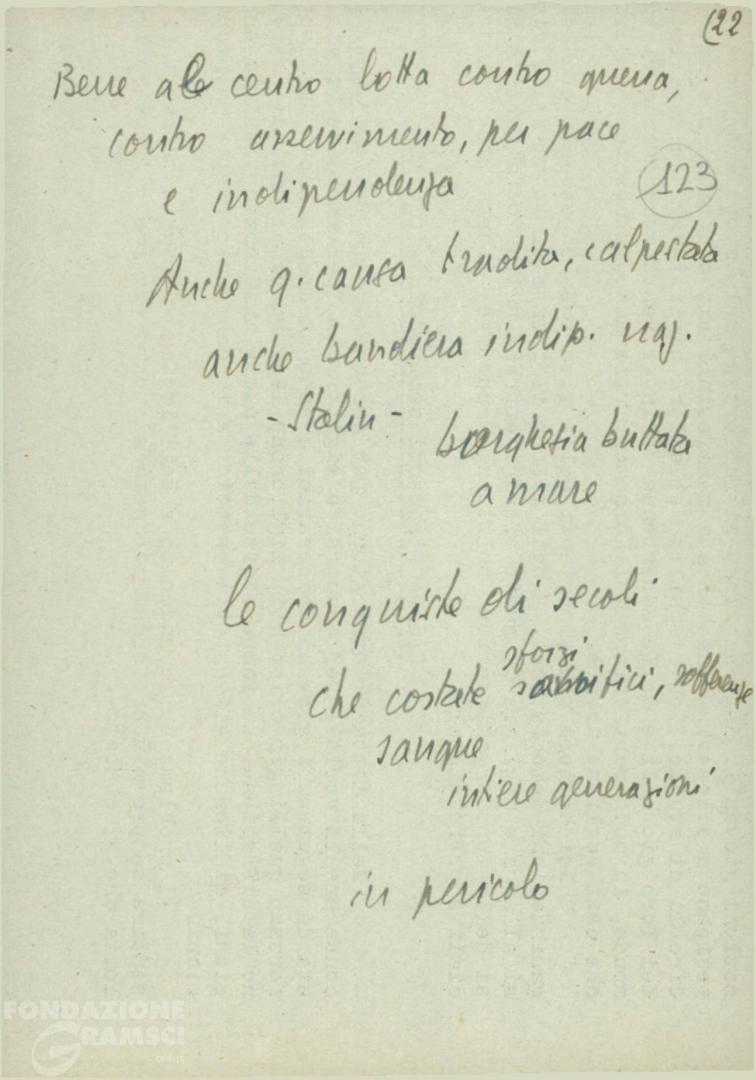 (22
Bene al centro lotta contro guerra,
contro asservimento, per pace
e indipendenza
123
Anche q. causa tradita, calpestata
anche bandiera indip. naz.
- Stalin -
borghesia buttata
a mare
le conquiste di secoli
sforzi
che costate sacrifici, sofferenze
sangue
intiere generazioni
in pericolo
FONDAZIONE
GRAMSCI
onlus